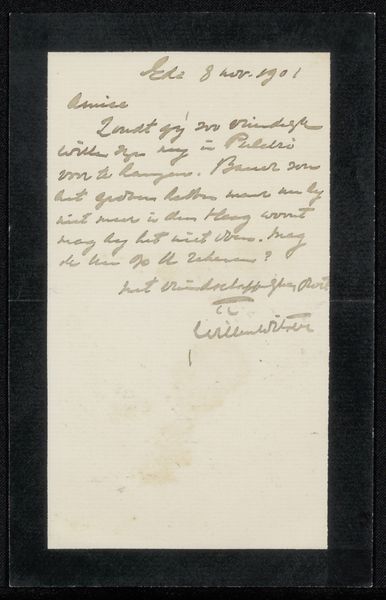 Ede 8 nov. 1901
Amice
Zoudt gij zoo vriendelijk
willen zijn mij in Pulchri
voor te hangen. Bauer zou
het gedaan hebben maar nu hij
niet meer in den Haag woont
mag hij het niet doen. Mag
ik nu op U rekenen?
met vriendschappelijken groet
tt
WillemWitsen